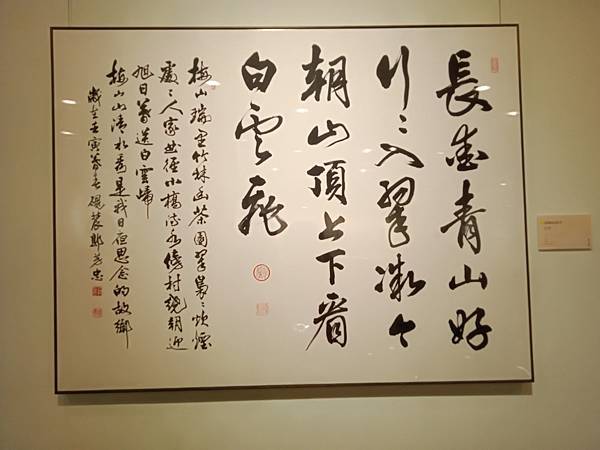 長愛青山好
行〻入翠微今
朝山頂上下看
白雲飛
梅山瑞里竹林幽茶園翠裊〻炊煙
處〻人家曲徑小橋流水傍村繞朝迎
旭日暮送白雲歸
梅山山清水秀是我日夜思念的故鄉
歲在壬寅暮春硯農鄭芳忠